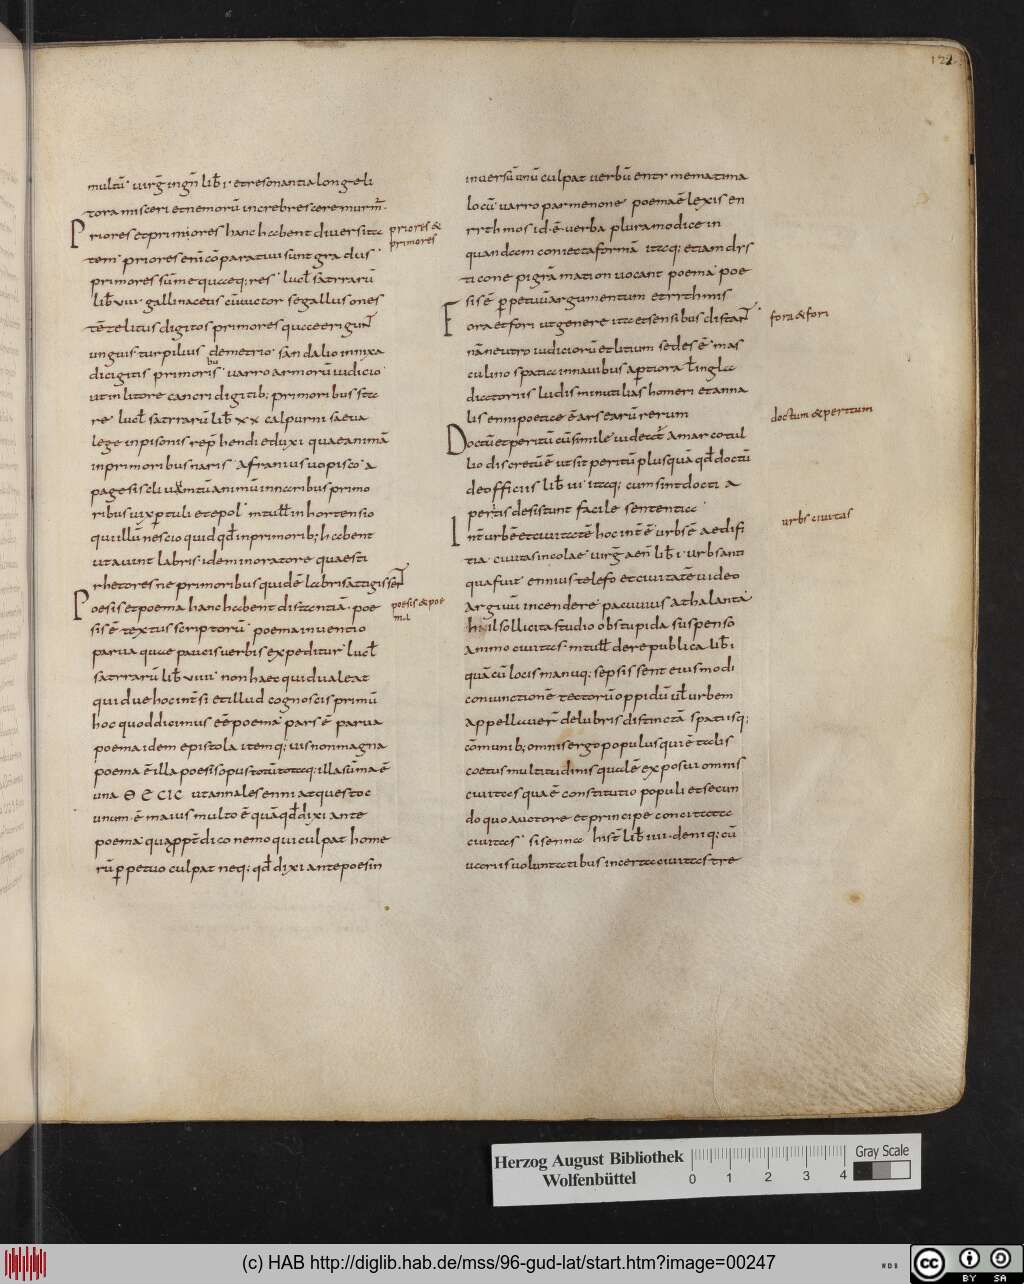 122
multū· virḡ ingn̄ lib̄ i· et resonantia longe li
tora misceri et nemorū increbrescere murm̄·
Priores et primiores hanc habent diversita
tem· priores enī cōparativi sunt gradus·
primores sūme quaeq; res· lucł satrrarū
lib̄ viii· gallinaceus cū victor se gallus ones
tē telitus digitos primores quae erigunt
unguis· turpilius demetrio· sandalio innixa
dicigitis primoris· varro armorū iudicio·
bu
ut in litore cancri digitib; primoribus sta
re· lucł satrrarū lib̄ xx calpurni saeva
lege in pisonis rep̄hendi eduxi quae animā
in primoribus naris· afranius vopisco· a
page sis eli vāntū animū in naribus primo
ribus vix ptuli et epol· m tułł in hortensio
qui illū nescio quid qd̄ in primorib; habent
ut aiunt labris· idem in oratore quaesti
rhetores ne primoribus quidē labris attigissent
Poesis et poema hanc habent distantiā· poe
sis ē textus scriptorū· poema inventio
parva quae paucis verbis expeditur· lucł
satrrarū lib̄ viiii· non haec quid valeat
quidve hoc int̄sit illud cognoscis primū
hoc quod dicimus eē poema· pars ē parva
poema idem epistola item q; vis non magna
poema ē illa poesis opus totū totaq; illa sūma ē
una Θ Є CIC ut annales enni atque stoc
unum· ē maius multo ē quā qd̄ dixi ante
poema· quappt̄ dico nemo qui culpat home
rū ppetuo culpat neq; qd̄ dixi ante poesin
priores &
primores
poesis & poe
ma
in versū unū culpat verbū entrmematuna
locū varro parmenone poema ē lexis en
rrthmos id· ē verba plura modice in
quandam coniecta formā itaq; etiam drs
ticone pigrāmation vocant poema· poe
sis ē ppetuū argumentum et rrthmis
Fora et fori ut genere ita et sensibus distant·
nā neutro iudiciorū et litium sedes ē· mas
culino spatia in navibus aptiora ł ingla
diatoriis ludis minutilias homeri et anna
lis enni poetice ē ars earū rerum
Doctū et peritū cū simile videat̄ amar cotul
lio discretū ē ut sit peritū plus quā qd̄ doctū
de officiis lib̄ iii itaq; cum sint docti a
peritis desistunt facile sententia·
Int̄ urbē et civitatē hoc int̄ē urbs ē aedifi
tia· civitas incolae virḡ aen̄ lib̄ i· urbs anti
qua fuit ennius telefo et civitatē video
argivū incendere pacuuius athalanta·
hunil sollicita studio obstupida suspenso
animo civitas· m tułł de republica lib̄ i
quā cū locis manuq; sepsissent eius modi
coniunctionē tectorū oppidū uł urbem
appellaver̄ delubris distinctā spatiisq;
cōmunib; omnis ergo populus qui ē talis
coetus multitudinis qualē exposui omnis
civitas quae ē constitutio populi et secun
do quo auctore et principe concitata
civitas· sisenna hist̄ lib̄ iiii· deniq; cū
variis voluntatibus incerta civitas tre
fora & fori
doctum & peritum
urbs civitas
Herzog August Bibliothek
Wolfenbüttel
0 1 2 3 4
Gray Scale
(c) HAB http://diglib.hab.de/mss/96-gud-lat/start.htm?image=00247
WDB
cc BY SA